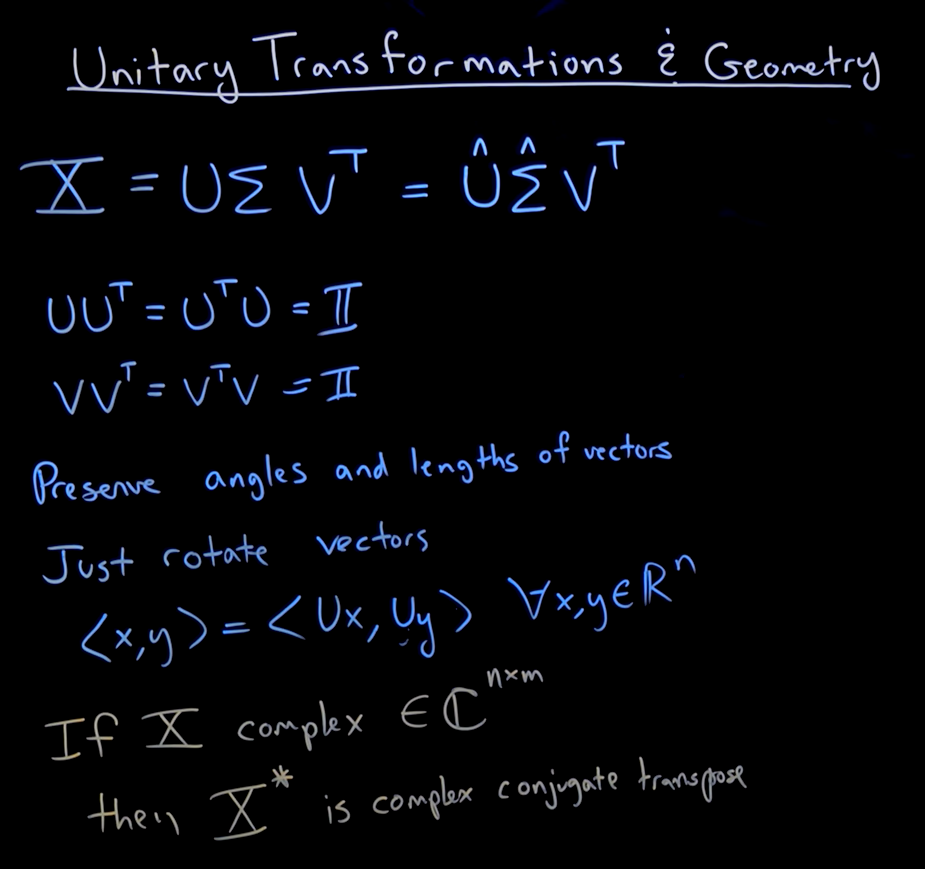 Unitary Transformations & Geometry
X = UΣV^T = ÛΣ̂V^T
UU^T = U^TU = I
VV^T = V^TV = I
Preserve angles and lengths of vectors
Just rotate vectors
<x,y> = <Ux, Uy> ∀x,y∈ℝ^n
If X complex ∈ ℂ^{n×m}
then X* is complex conjugate transpose